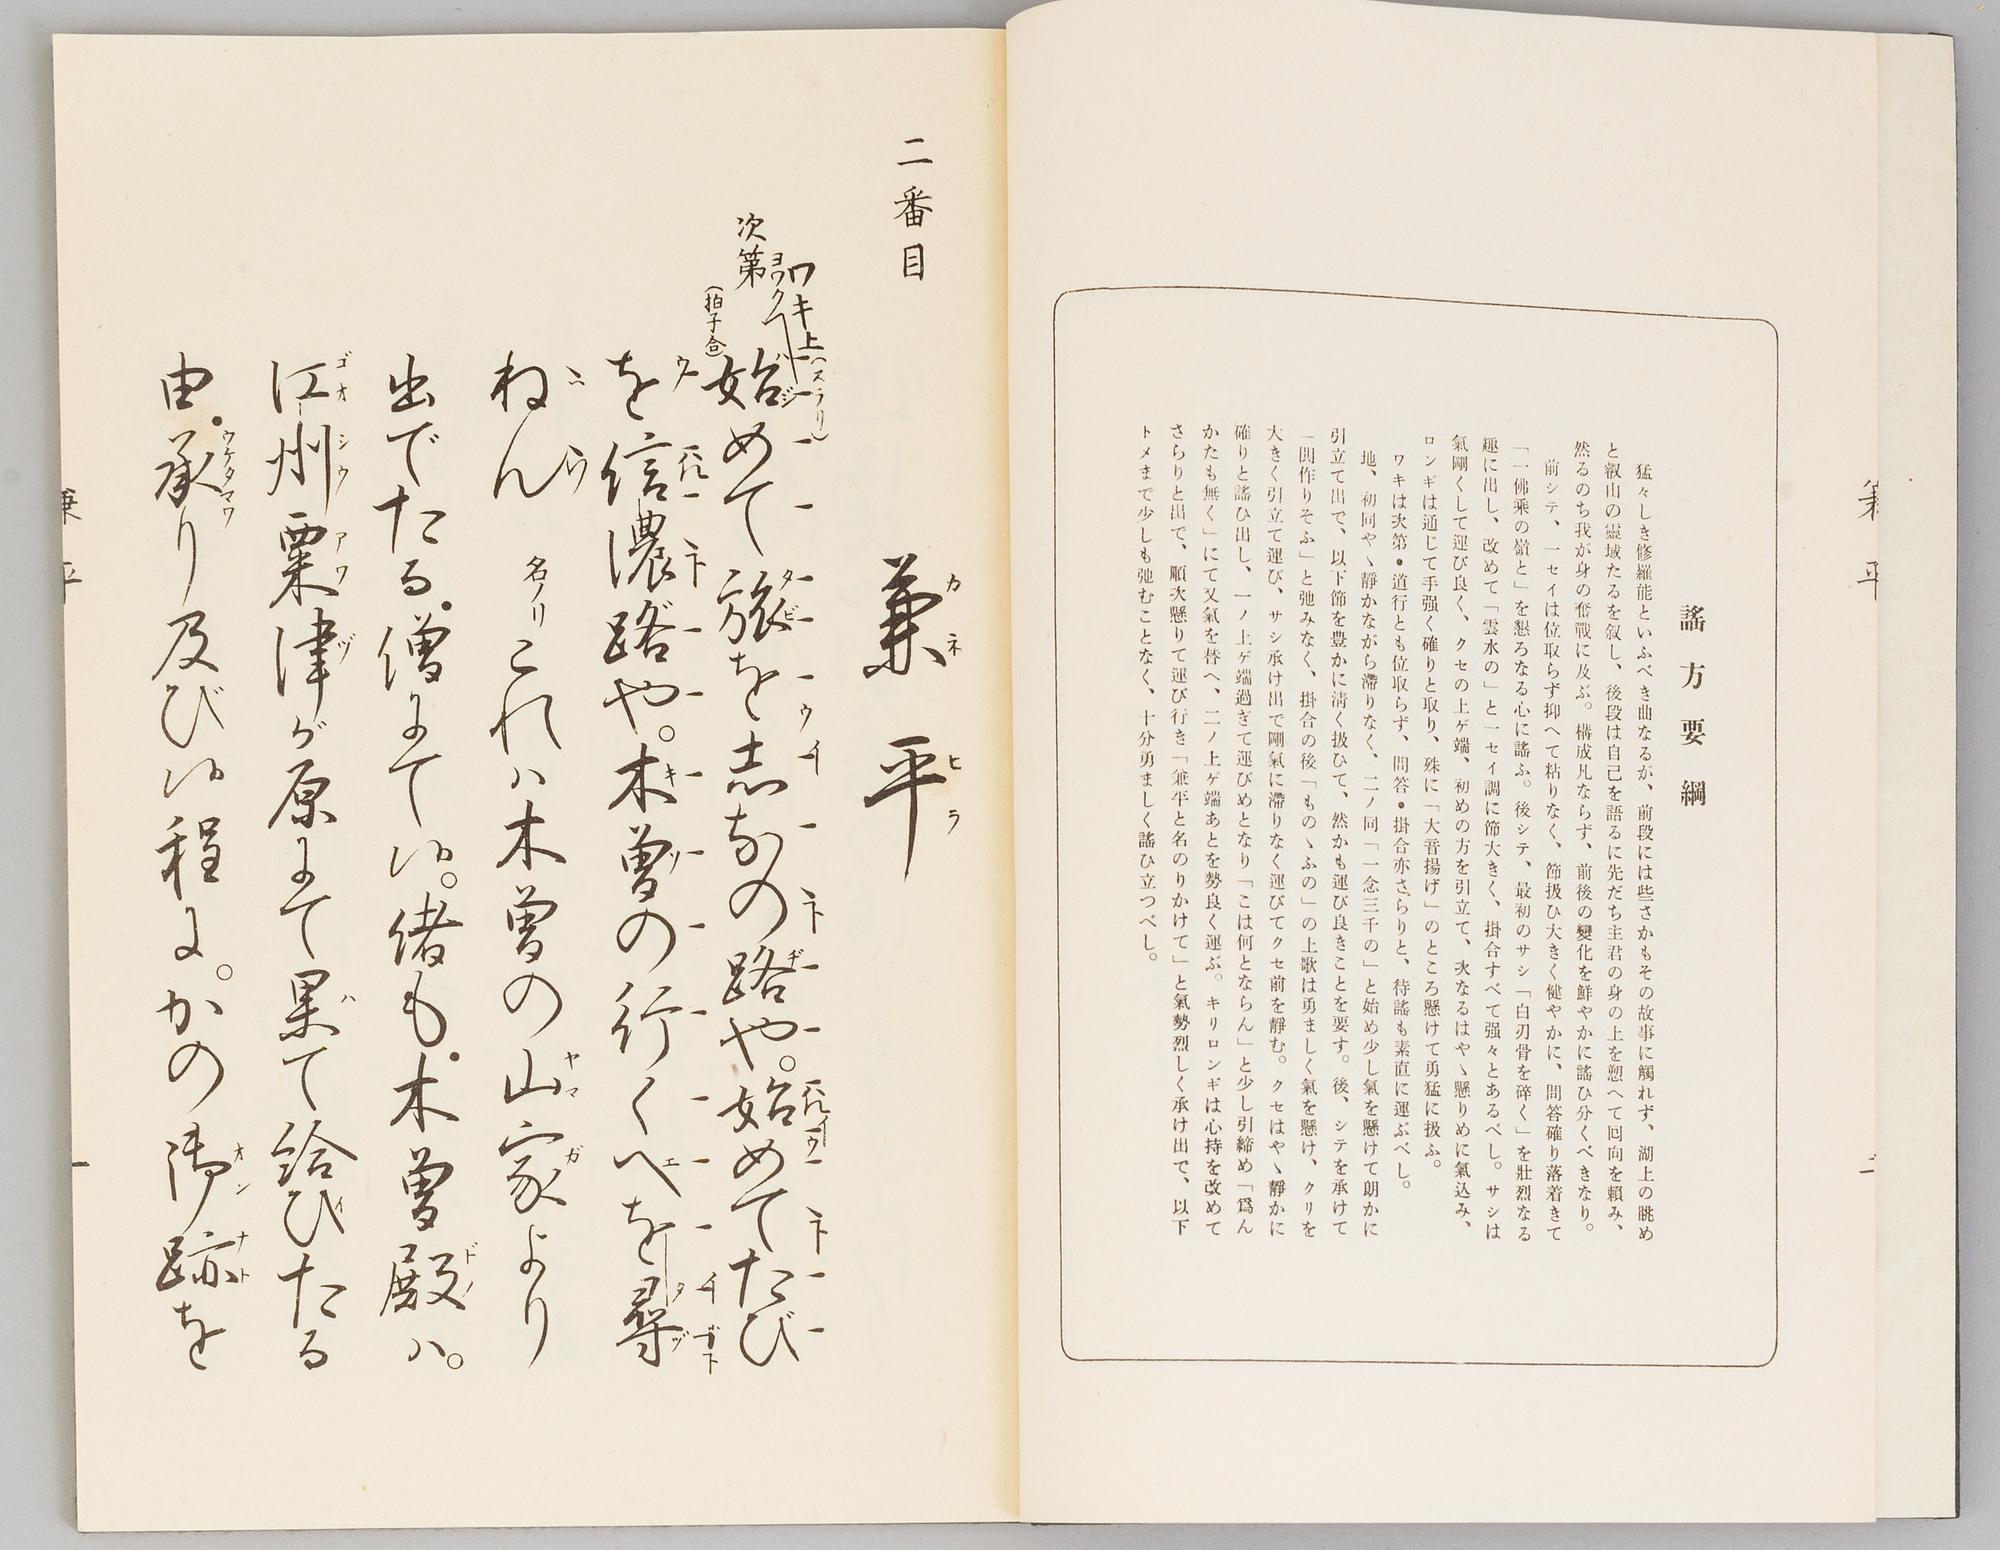 謠方要綱
猛々しき修羅能といふべき曲なるが、前段には些さかもその故事に觸れず、湖上の眺め
と叡山の靈域たるを敍し、後段は自己を語るに先だち主君の身の上を愬へて囘向を賴み、
然るのち我が身の奮戰に及ぶ。構成凡ならず、前後の變化を鮮やかに謠ひ分くべきなり。
前シテ、一セイは位取らず抑へて粘りなく、節扱ひ大きく健やかに、問答確り落着きて
「一佛乘の嶺と」を懇ろなる心に謠ふ。後シテ、最初のサシ「白刃骨を碎く」を壯烈なる
趣に出し、改めて「雲水の」と一セイ調に節大きく、掛合すべて强々とあるべし。サシは
氣剛くして運び良く、クセの上ゲ端、初めの方を引立て、次なるはやゝ懸りめに氣込み、
ロンギは通じて手强く確りと取り、殊に「大音揚げ」のところ懸けて勇猛に扱ふ。
ワキは次第・道行とも位取らず、問答・掛合亦さらりと、待謠も素直に運ぶべし。
地、初同やゝ靜かながら滯りなく、二ノ同「一念三千の」と始め少し氣を懸けて朗かに
引立て出で、以下節を豊かに淸く扱ひて、然かも運び良きことを要す。後、シテを承けて
「間作りそふ」と弛みなく、掛合の後「ものゝふの」の上歌は勇ましく氣を懸け、クリを
大きく引立て運び、サシ承け出で剛氣に滯りなく運びてクセ前を靜む。クセはやゝ靜かに
確りと謠ひ出し、一ノ上ゲ端過ぎて運びめとなり「こは何とならん」と少し引締め「爲ん
かたも無く」にて又氣を替へ、二ノ上ゲ端あとを勢良く運ぶ。キリロンギは心持を改めて
さらりと出で、順次懸りて運び行き「兼平と名のりかけて」と氣勢烈しく承け出で、以下
トメまで少しも弛むことなく、十分勇ましく謠ひ立つべし。
二番目
兼平
カネヒラ
ワキ上(スラリ)
ヨワク
次第
(拍子合)
始めて旅を志なの路や。始めてたび
を信濃路や。木曽の行くへを尋
ねん
名ノリ
これハ木曽の山家より
出でたる僧にて候。偖も木曽殿ハ。
江州粟津が原にて果て給ひたる
由。承り及び候程に。かの御跡を
兼平
一